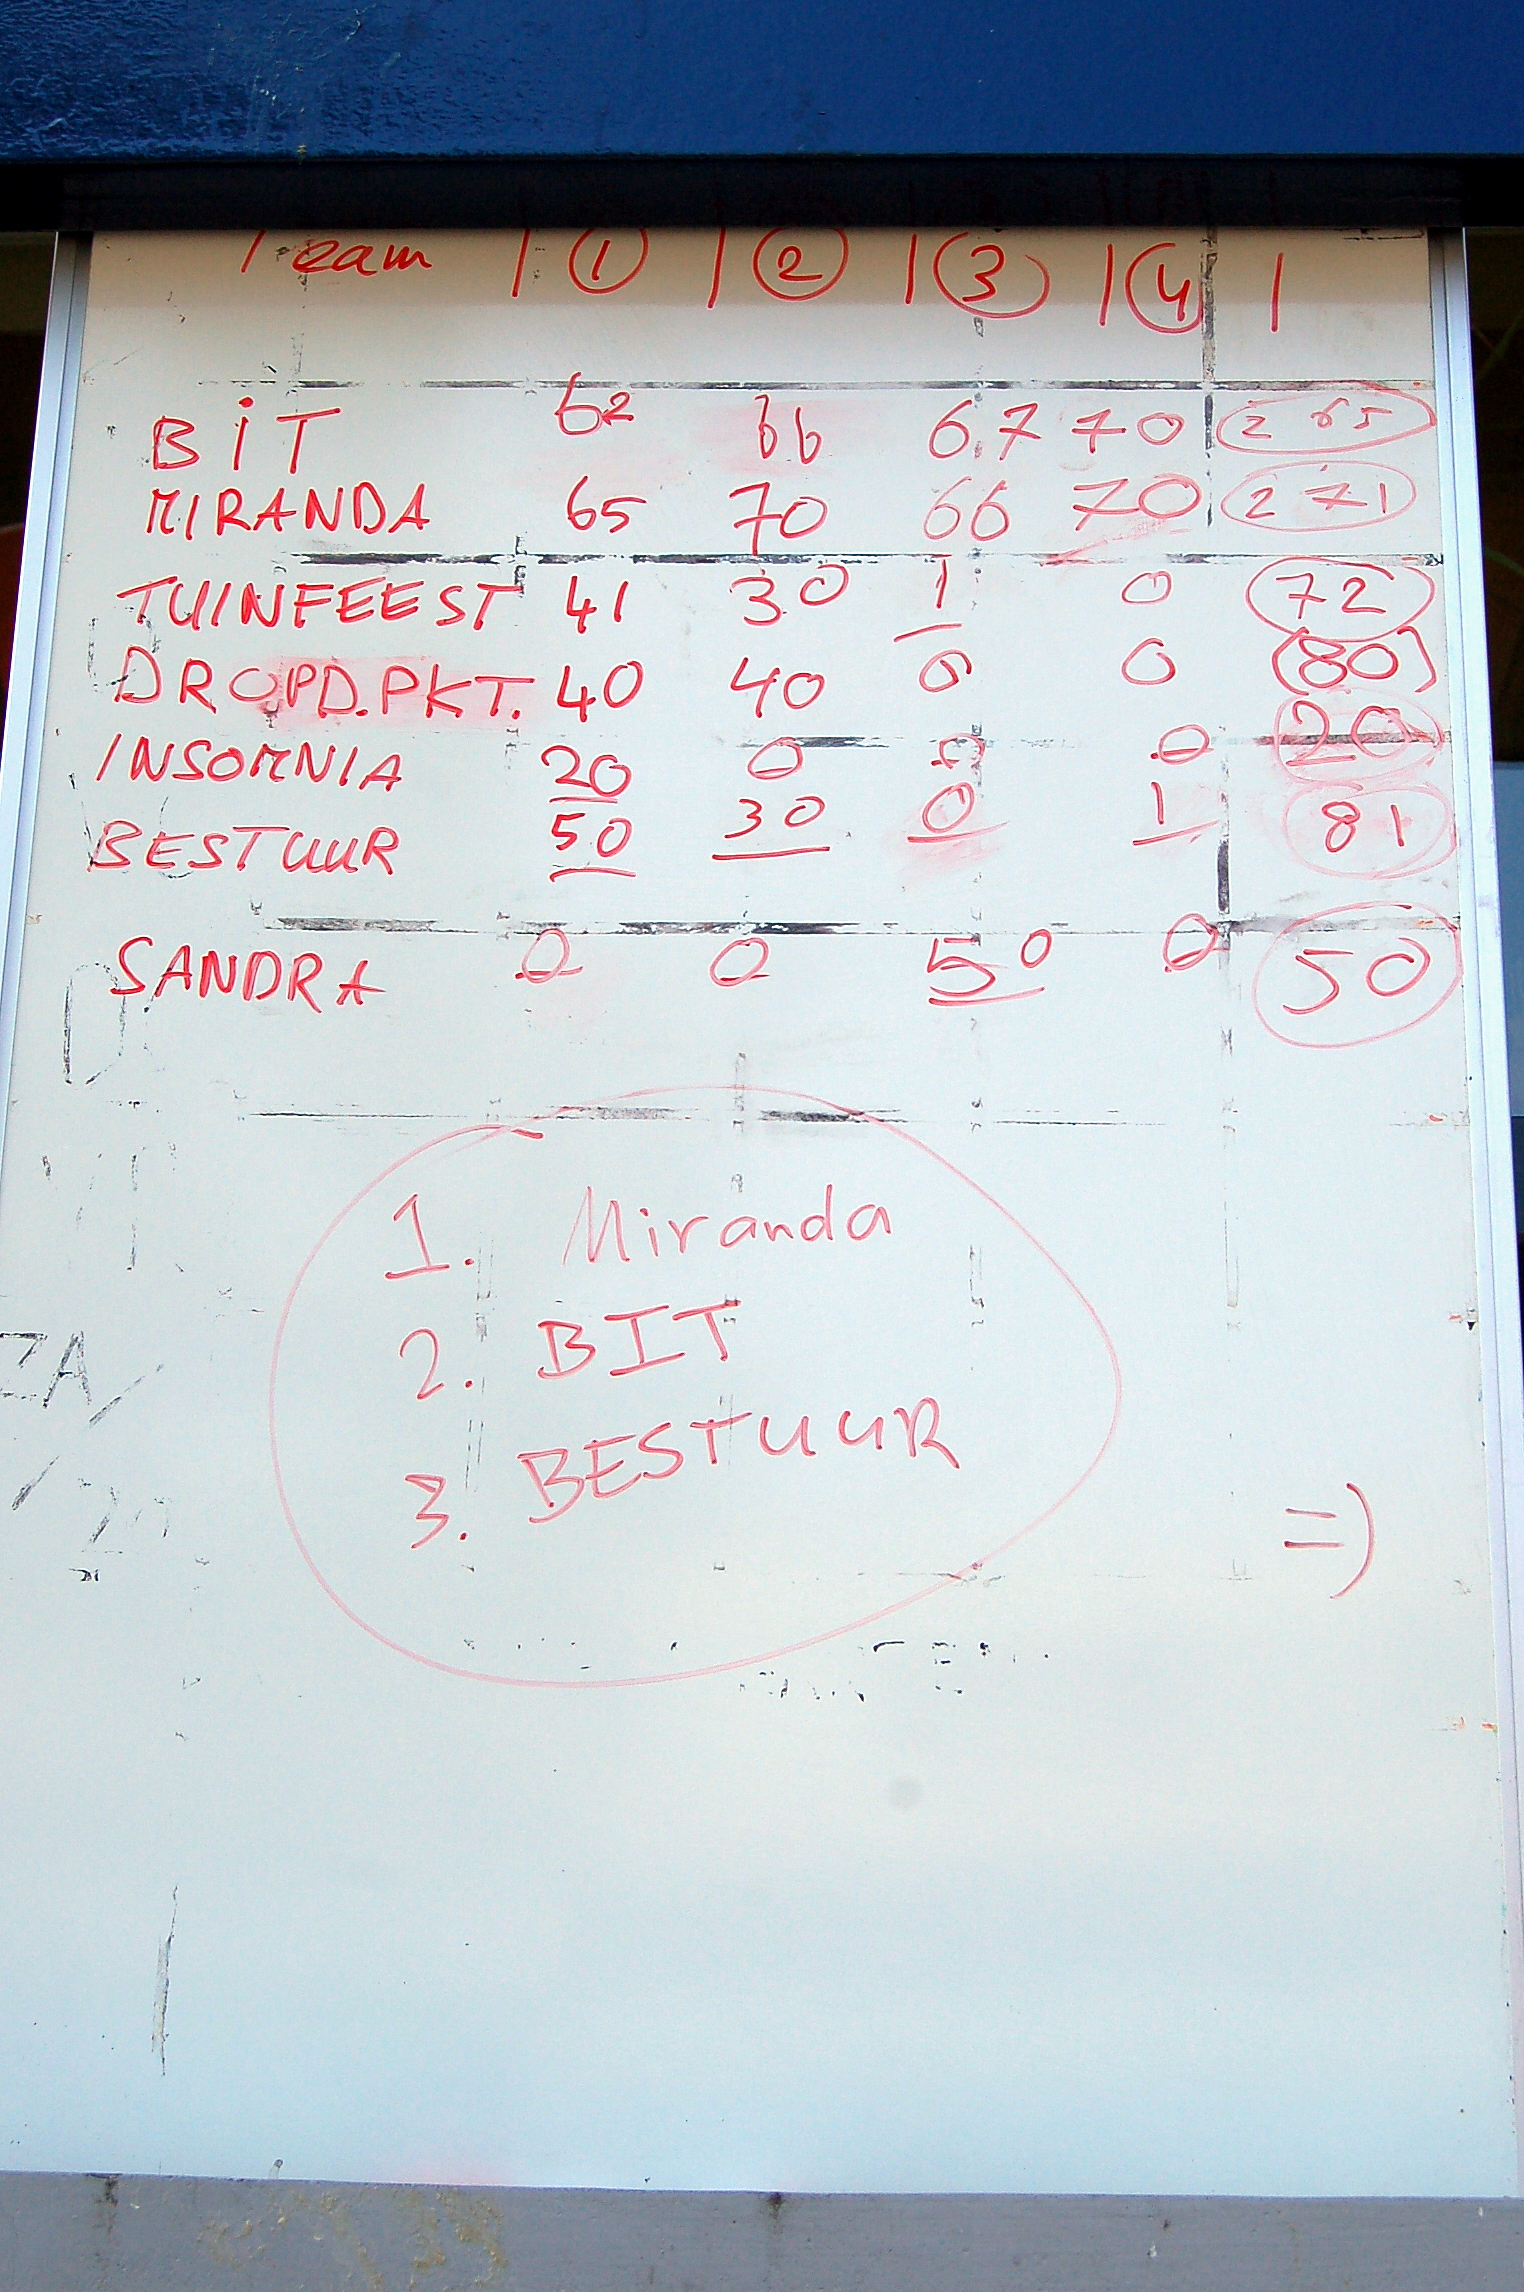 Team | 1 | 2 | 3 | 4 |
BIT 62 66 67 70 265
MIRANDA 65 70 66 70 271
TUINFEEST 41 30 1 0 72
DROPD.PKT. 40 40 0 0 (80)
INSOMNIA 20 0 0 0 20
BESTUUR 50 30 0 1 81
SANDRA 0 0 50 0 50
1. Miranda
2. BIT
3. BESTUUR
=)
ZA